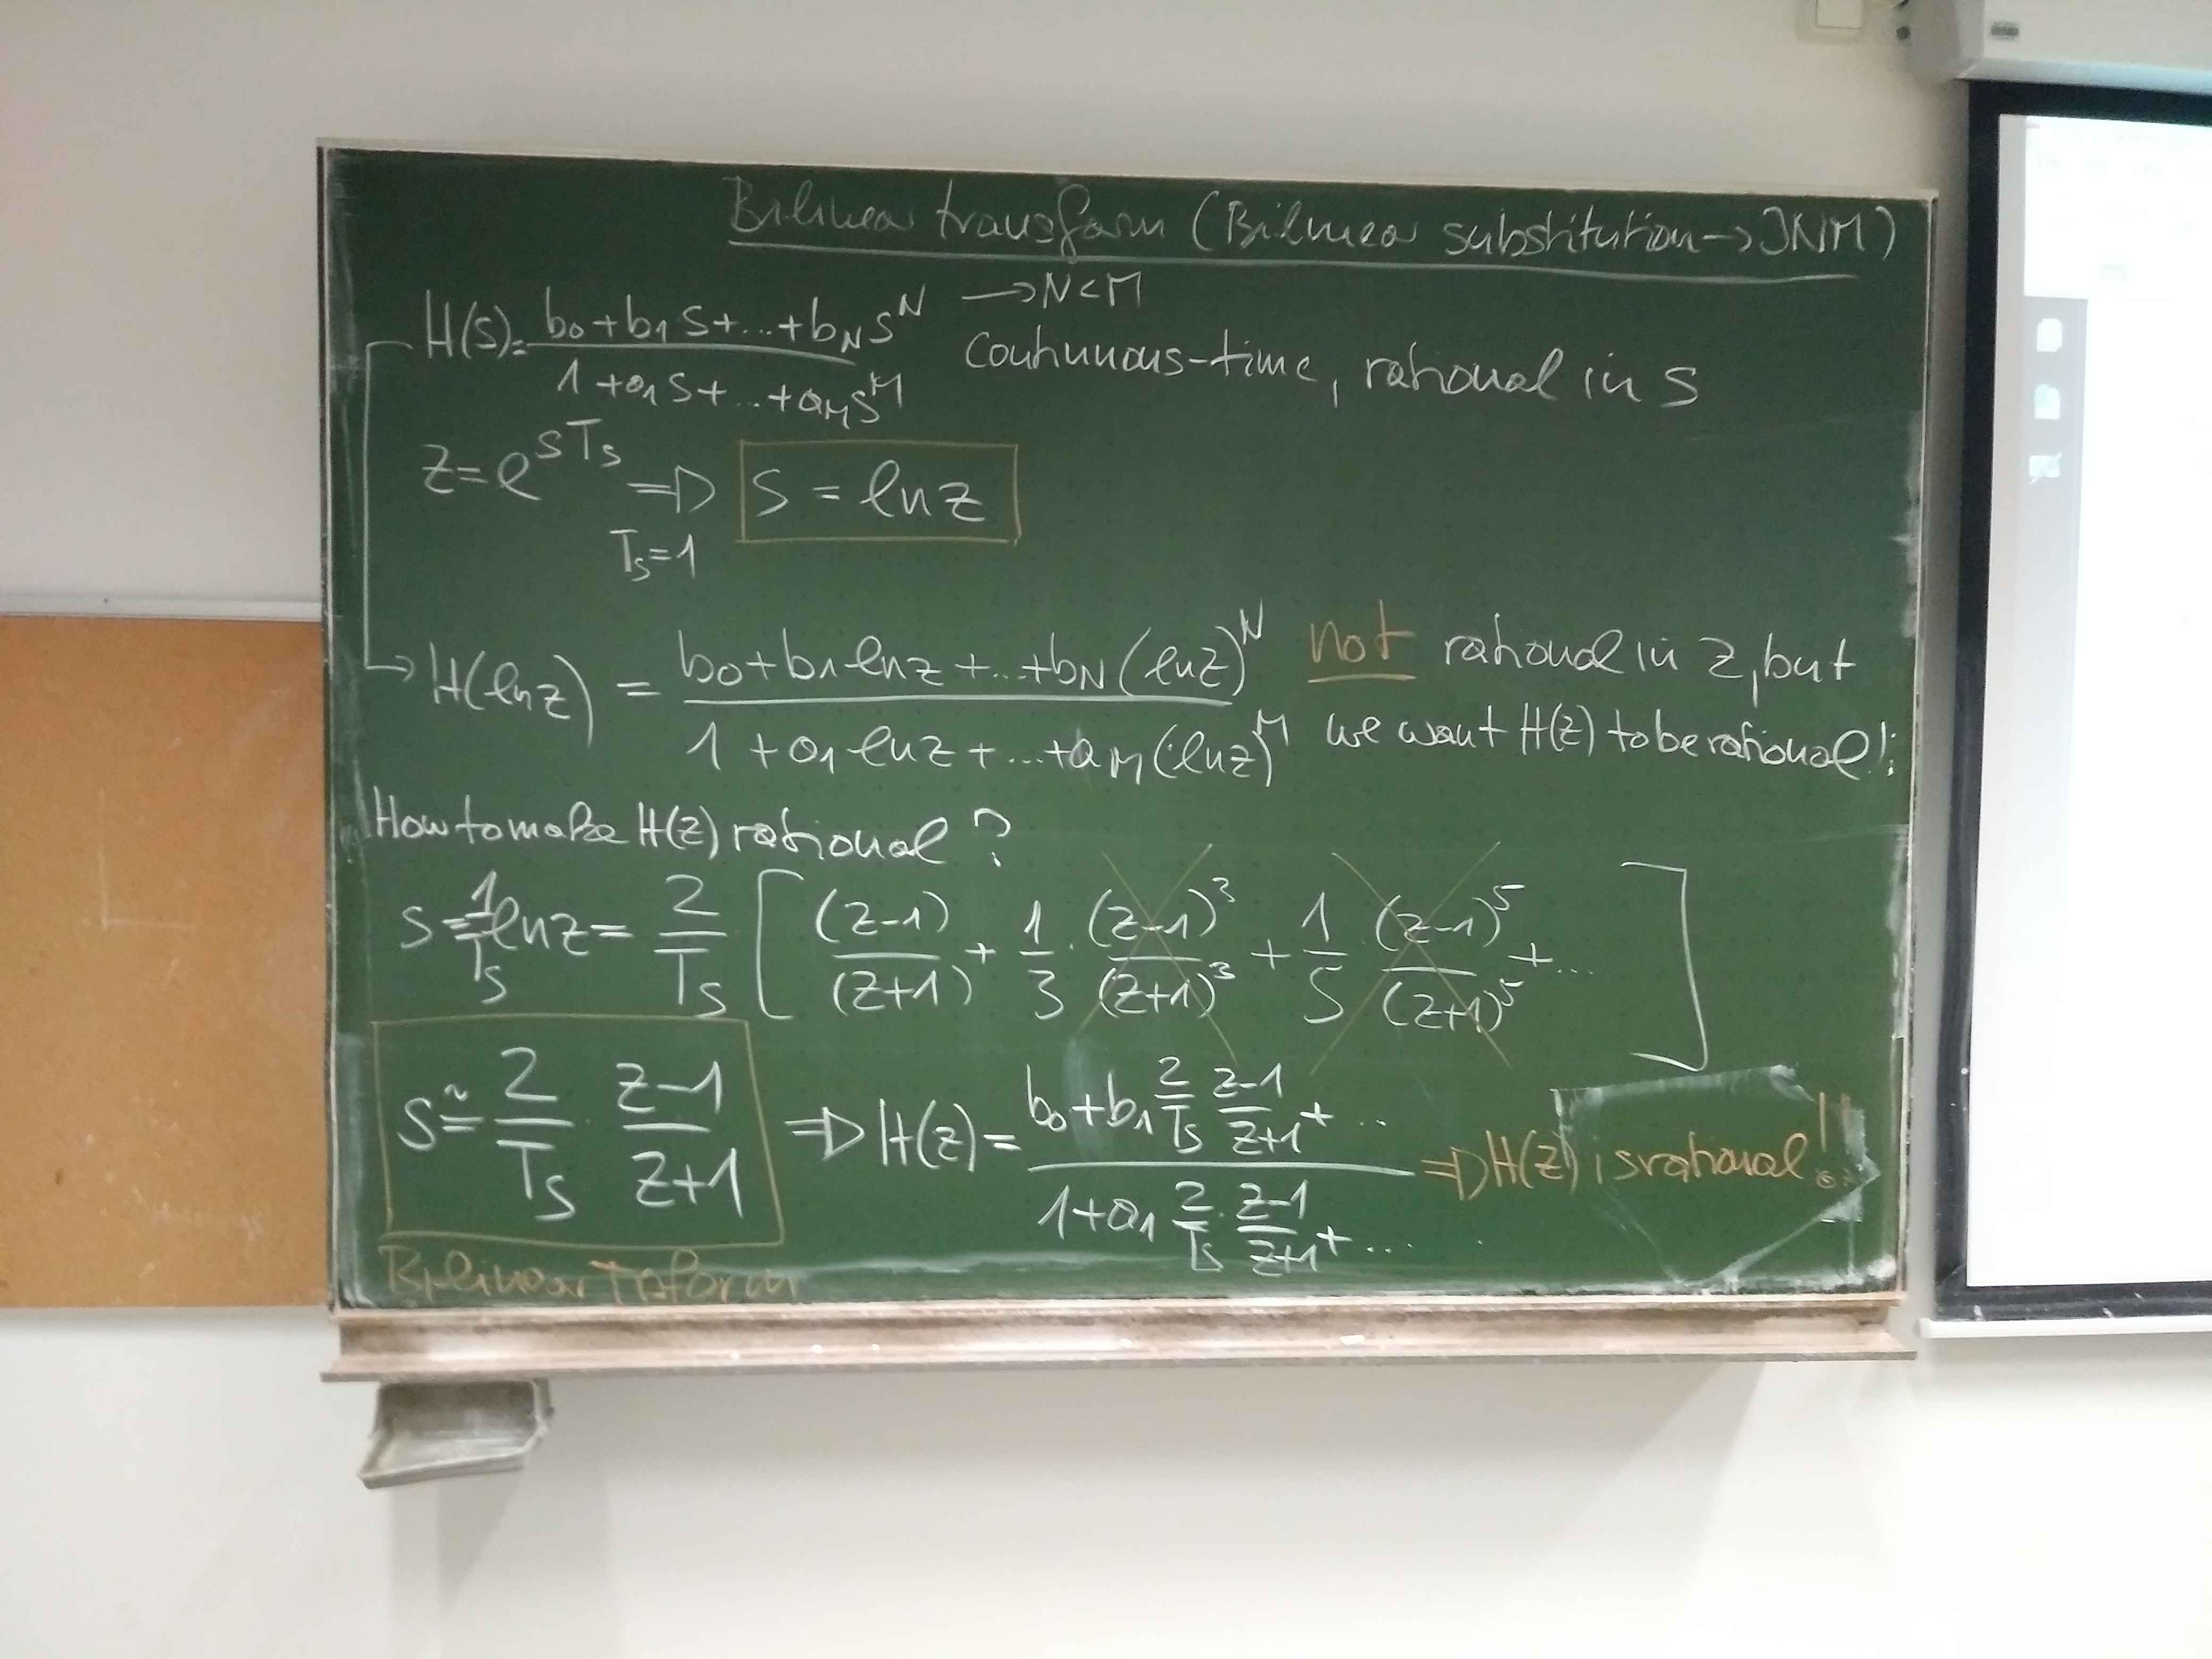 Bilinear transform (Bilinear substitution → JNM)
H(s) = (b0 + b1 s + ... + bN s^N) / (1 + a1 s + ... + aM s^M) → N < M
continuous-time, rational in s
z = e^(s Ts) ⇒ s = ln z
Ts = 1
H(ln z) = (b0 + b1 ln z + ... + bN (ln z)^N) / (1 + a1 ln z + ... + aM (ln z)^M) not rational in z, but
we want H(z) to be rational!
How to make H(z) rational?
s = 1/Ts ln z = 2/Ts [ (z-1)/(z+1) + 1/3 · (z-1)^3/(z+1)^3 + 1/5 · (z-1)^5/(z+1)^5 + ... ]
s ≅ 2/Ts · (z-1)/(z+1) ⇒ H(z) = (b0 + b1 2/Ts (z-1)/(z+1) + ...) / (1 + a1 2/Ts · (z-1)/(z+1) + ...) ⇒ H(z) is rational!!
Bilinear Tsform